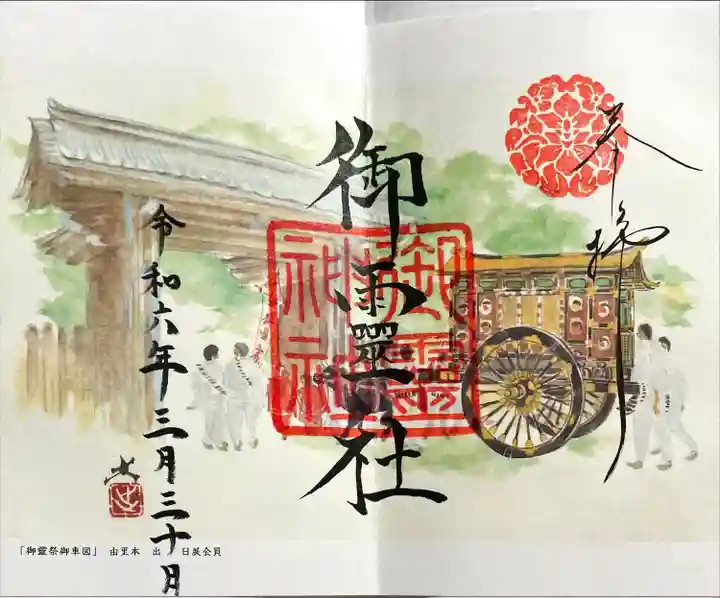 奉拝
御靈社
令和六年三月三十日
「御靈祭御車図」 由里本 出 日展会員